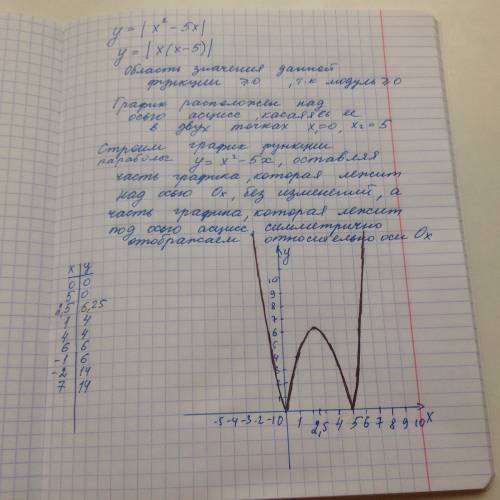 y = | x² - 5x |
y = | x(x-5) |
Область значения данной
функции ≥0 , т.к модуль ≥0
График расположен над
осью асцисс, касаясь ее
в двух точках x₁=0, x₂=5
Строим график функции
параболы y = x² - 5x, оставляя
часть графика, которая лежит
над осью Ox, без изменений, а
часть графика, которая лежит
под осью асцисс, симметрично
отображаем относительно оси Ox
x y
0 0
5 0
2,5 6,25
1 4
4 4
6 6
-1 6
-2 14
7 14
y
10
9
8
7
6
5
4
3
2
1
-5 -4 -3 -2 -1 0 1 2,5 4 5 6 7 8 9 10 x